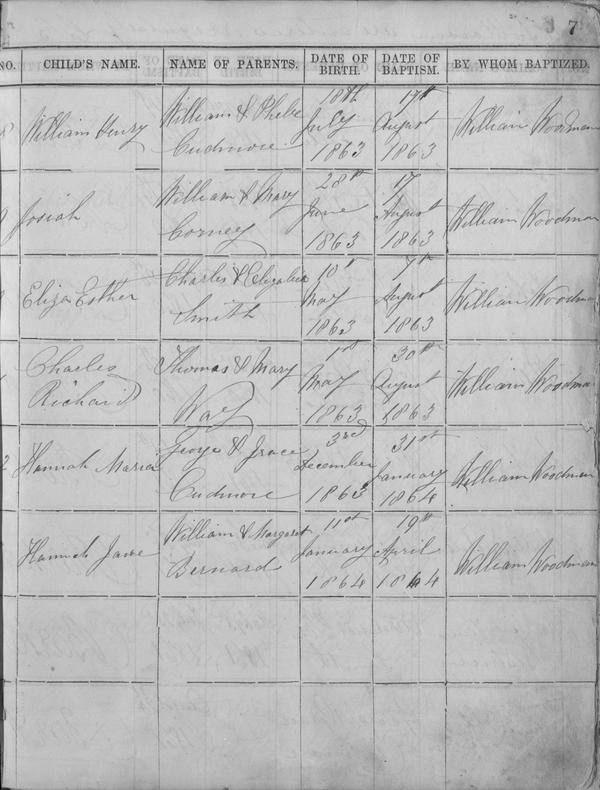 7
NO. CHILD'S NAME. NAME OF PARENTS. DATE OF BIRTH. DATE OF BAPTISM. BY WHOM BAPTIZED.
William Henry William & Phebe Cudmore 18th July 1863 17th August 1863 William Woodman
Josiah William & Mary Corney 28th June 1863 17 August 1863 William Woodman
Eliza Esther Charles & Elizabeth Smith 10th May 1863 7th August 1863 William Woodman
Charles Richard Thomas & Mary Way 1st May 1863 30th August 1863 William Woodman
2 Hannah Maria George & Grace Cudmore 3rd December 1863 31st January 1864 William Woodman
Hannah Jane William & Margaret Bernard 11st January 1864 19th April 1864 William Woodman